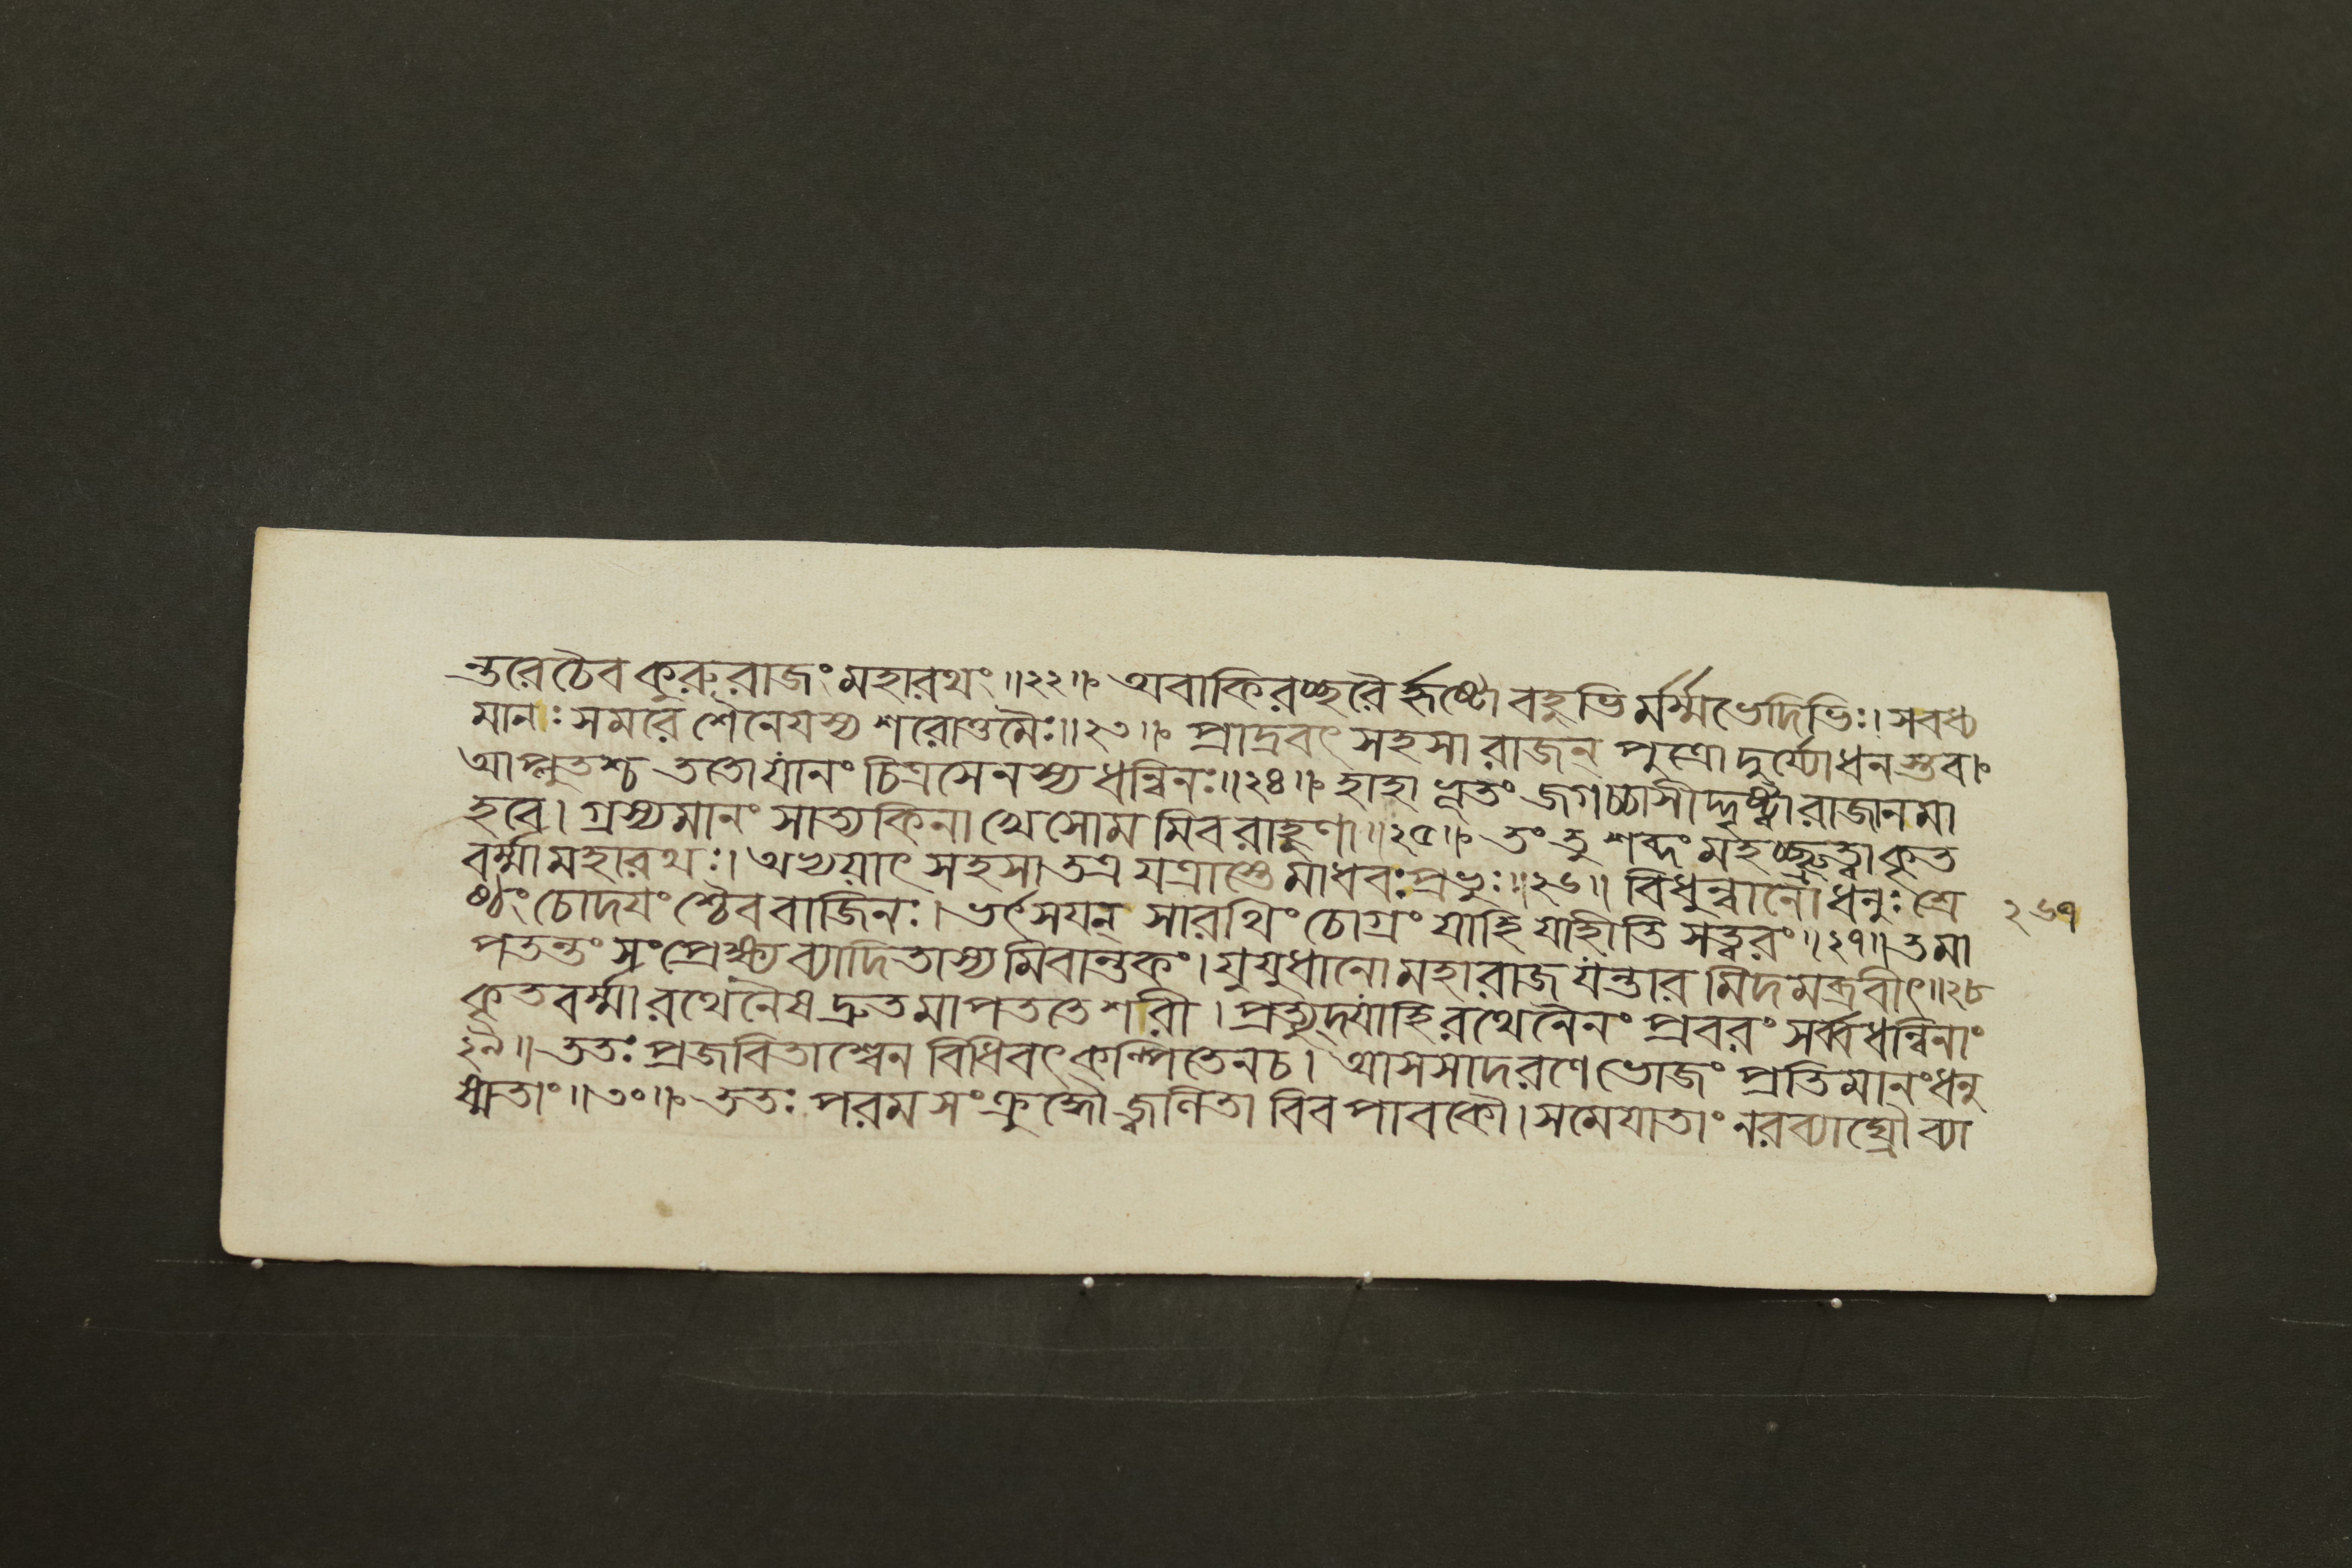 ন্তরে চৈব কুরুরাজং মহারথং ॥ ২২ ॥ অবাকিরচ্ছরৈর্হৃষ্টো বহুভির্মর্ম্মভেদিভিঃ । স বধ্য
মানঃ সমরে শৈনেযস্য শরোত্তমৈঃ ॥ ২৩ ॥ প্রাদ্রবৎ সহসা রাজন্ পুত্রো দুর্য্যোধনস্তব ।
আপ্লুতশ্চ ততো যানং চিত্রসেনস্য ধন্বিনঃ ॥ ২৪ ॥ হাহাভূতং জগচ্চাসীদ্দৃষ্ট্বা রাজানমা
হবে । গ্রস্যমানং সাত্যকিনা খে সোমমিব রাহুণা ॥ ২৫ ॥ তং তু শব্দং মহচ্ছ্রুত্বা কৃত
বর্ম্মা মহারথঃ । অভ্যয়াৎ সহসা তত্র যত্রাস্তে মাধবঃ প্রভুঃ ॥ ২৬ ॥ বিধুন্বানো ধনুঃ শ্রে
ষ্ঠং চোদযংশ্চৈব বাজিনঃ । ভর্ৎসযন্ সারথিং চোগ্রং যাহি যাহীতি সত্বরং ॥ ২৭ ॥ তমা
২৬৭
পতন্তং সংপ্রেক্ষ্য ব্যাদিতাস্যমিবান্তকং । যুযুধানো মহারাজ যন্তারমিদমব্রবীৎ ॥ ২৮
কৃতবর্ম্মা রথেনৈষ দ্রুতমাপততে শরী । প্রত্যুদ্যাহি রথেনৈনং প্রবরং সর্ব্বধন্বিনাং
২৯ ॥ ততঃ প্রজবিতাশ্বেন বিধিবৎ কল্পিতেন চ । আসসাদ রণে ভোজং প্রতিমানং ধনু
ষ্মতাং ॥ ৩০ ॥ ততঃ পরমসংক্রুদ্ধৌ জ্বলিতাবিব পাবকৌ । সমেযাতাং নরব্যাঘ্রৌ ব্যা